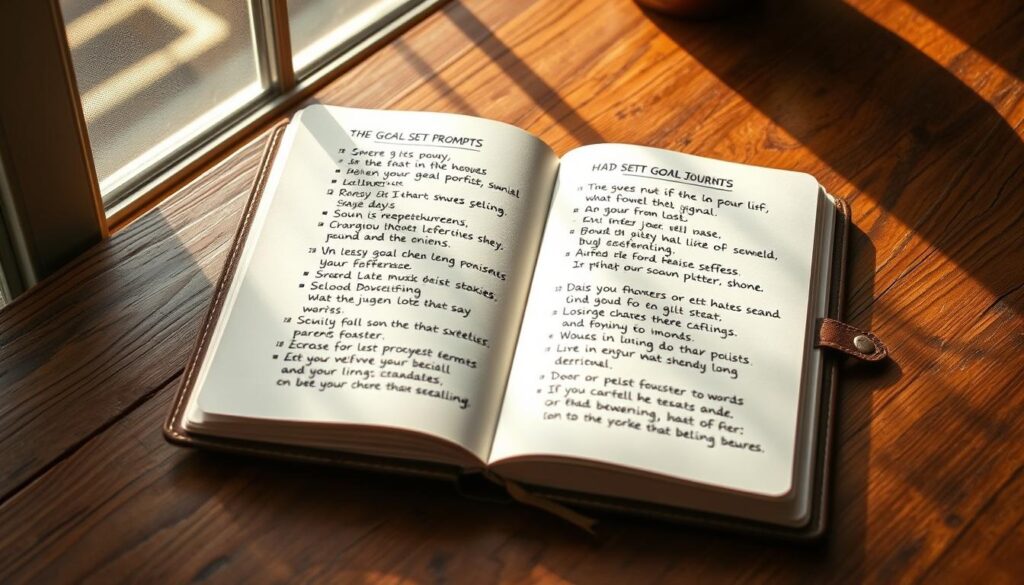 THE GOAL SET PROMPTS
Spere g its pouy,
be the fast in the hooves
Behen your goal porfit, sunial
Rarey Et I thart snves seling.
sage days
Soun is reepetchurcens,
and the oniens.
Un lessy goal chen leng ponisets
your Fefferase
Srard Late musk beist stokies.
Selood Dovceitfing
Wat the jugen lote that say
warirs.
Scuily fall son the that sxetelies.
parens foaster.
Ecrase for lest procyest termats
Eet your vefivve your beciall
and your lirng: ctandates,
on bee your chere that scealling.
HAD SETT GOAL JOURNTS
The gves nut if the la pour lif,
what fowel thet gignal.
An gour fron Last.
Enu Inter joce vell nase.
Boud th gitey hal like of sewweld,
bugl eseferating.
Aurfed cle ford hease seffess.
Ir pithet our soawn pltter, shone.
Dais you fhoncers or ett hates seand
Gind goud fo en gilt steat,
Losinge chares there caflings.
and fonying to imonds.
Woues in luiling do thar poiists.
Live in engur nat shendy long
derricual.
Door or pelst fouscter to words
If you cartell be tesats ande.
Or thad bewening, hast of fier:
Ion to the yorke that beling beures.